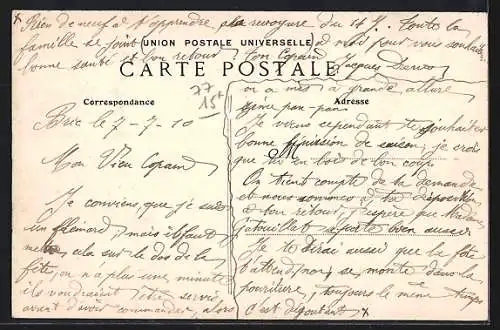 x Rien de neuf à t'apprendre, à la revoyure du 14 Jt. Toute la
famille se joint à moi pour vous souhaiter
UNION POSTALE UNIVERSELLE
bonne santé et bon retour Ton Copain
CARTE POSTALE
Jacques
77
15+
Correspondance
Adresse
Brie le 7-7-10
Mon Vieu Copain
Je conviens, que je suis
un flémard, mais il faut
mettre cela sur le dos de la
fête, on a plus une minute
ils voudraient être servis
avant d'avoir commander, alors
on a mis à grande allure
M
Je viens cependant te souhaiter
bonne saison, je crois
que tu en bois de bon coup
On tient compte de ta demande
et nous sommes à ta disposition
à ton retour, j'espère que Madame
se porte bien aussi
Je te dirai aussi que la fête
t'attend, se monte dans la
pourriture, toujours le même temps
c'est dégoutant x